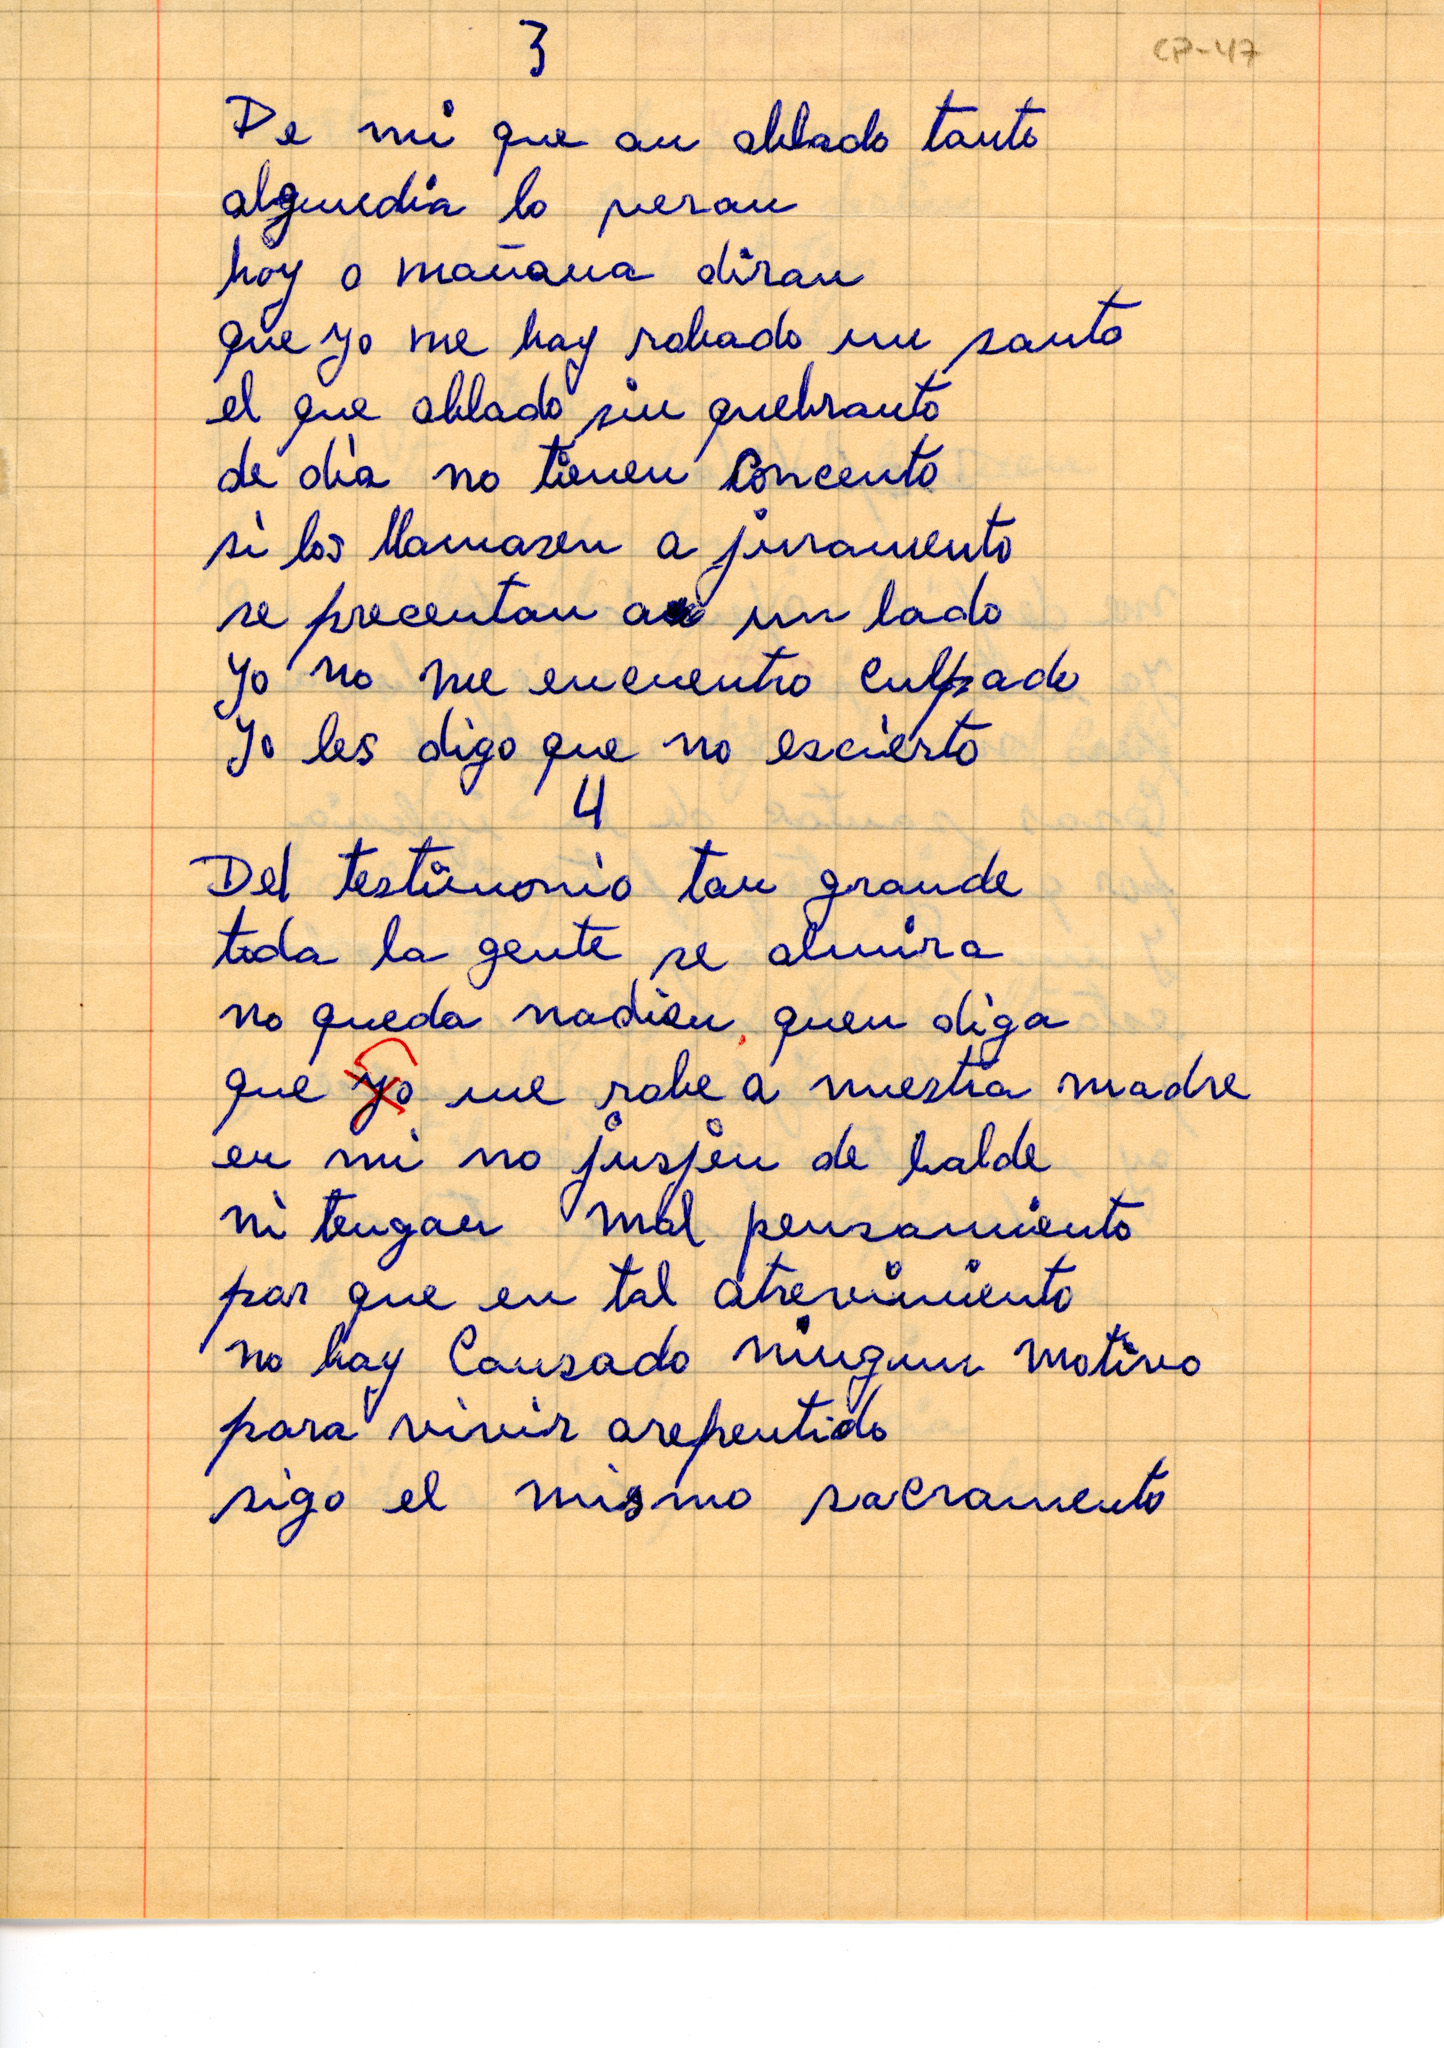 CP-47
3
De mi que an ablado tanto
algundia lo veran
hoy o mañana diran
que yo me hay robado un santo
el que ablado sin quebranto
de dia no tienen Concento
si los llamasen a juramento
se precentan a un lado
yo no me encuentro culpado
yo les digo que no escierto
4
Del testimonio tan grande
toda la gente se almira
no queda nadien quen diga
que yo me robe a nuestra madre
en mi no jusjen de balde
ni tengan mal pensamiento
por que en tal atrevimiento
no hay Causado ningun motivo
para vivir arepentido
sigo el mismo sacramento